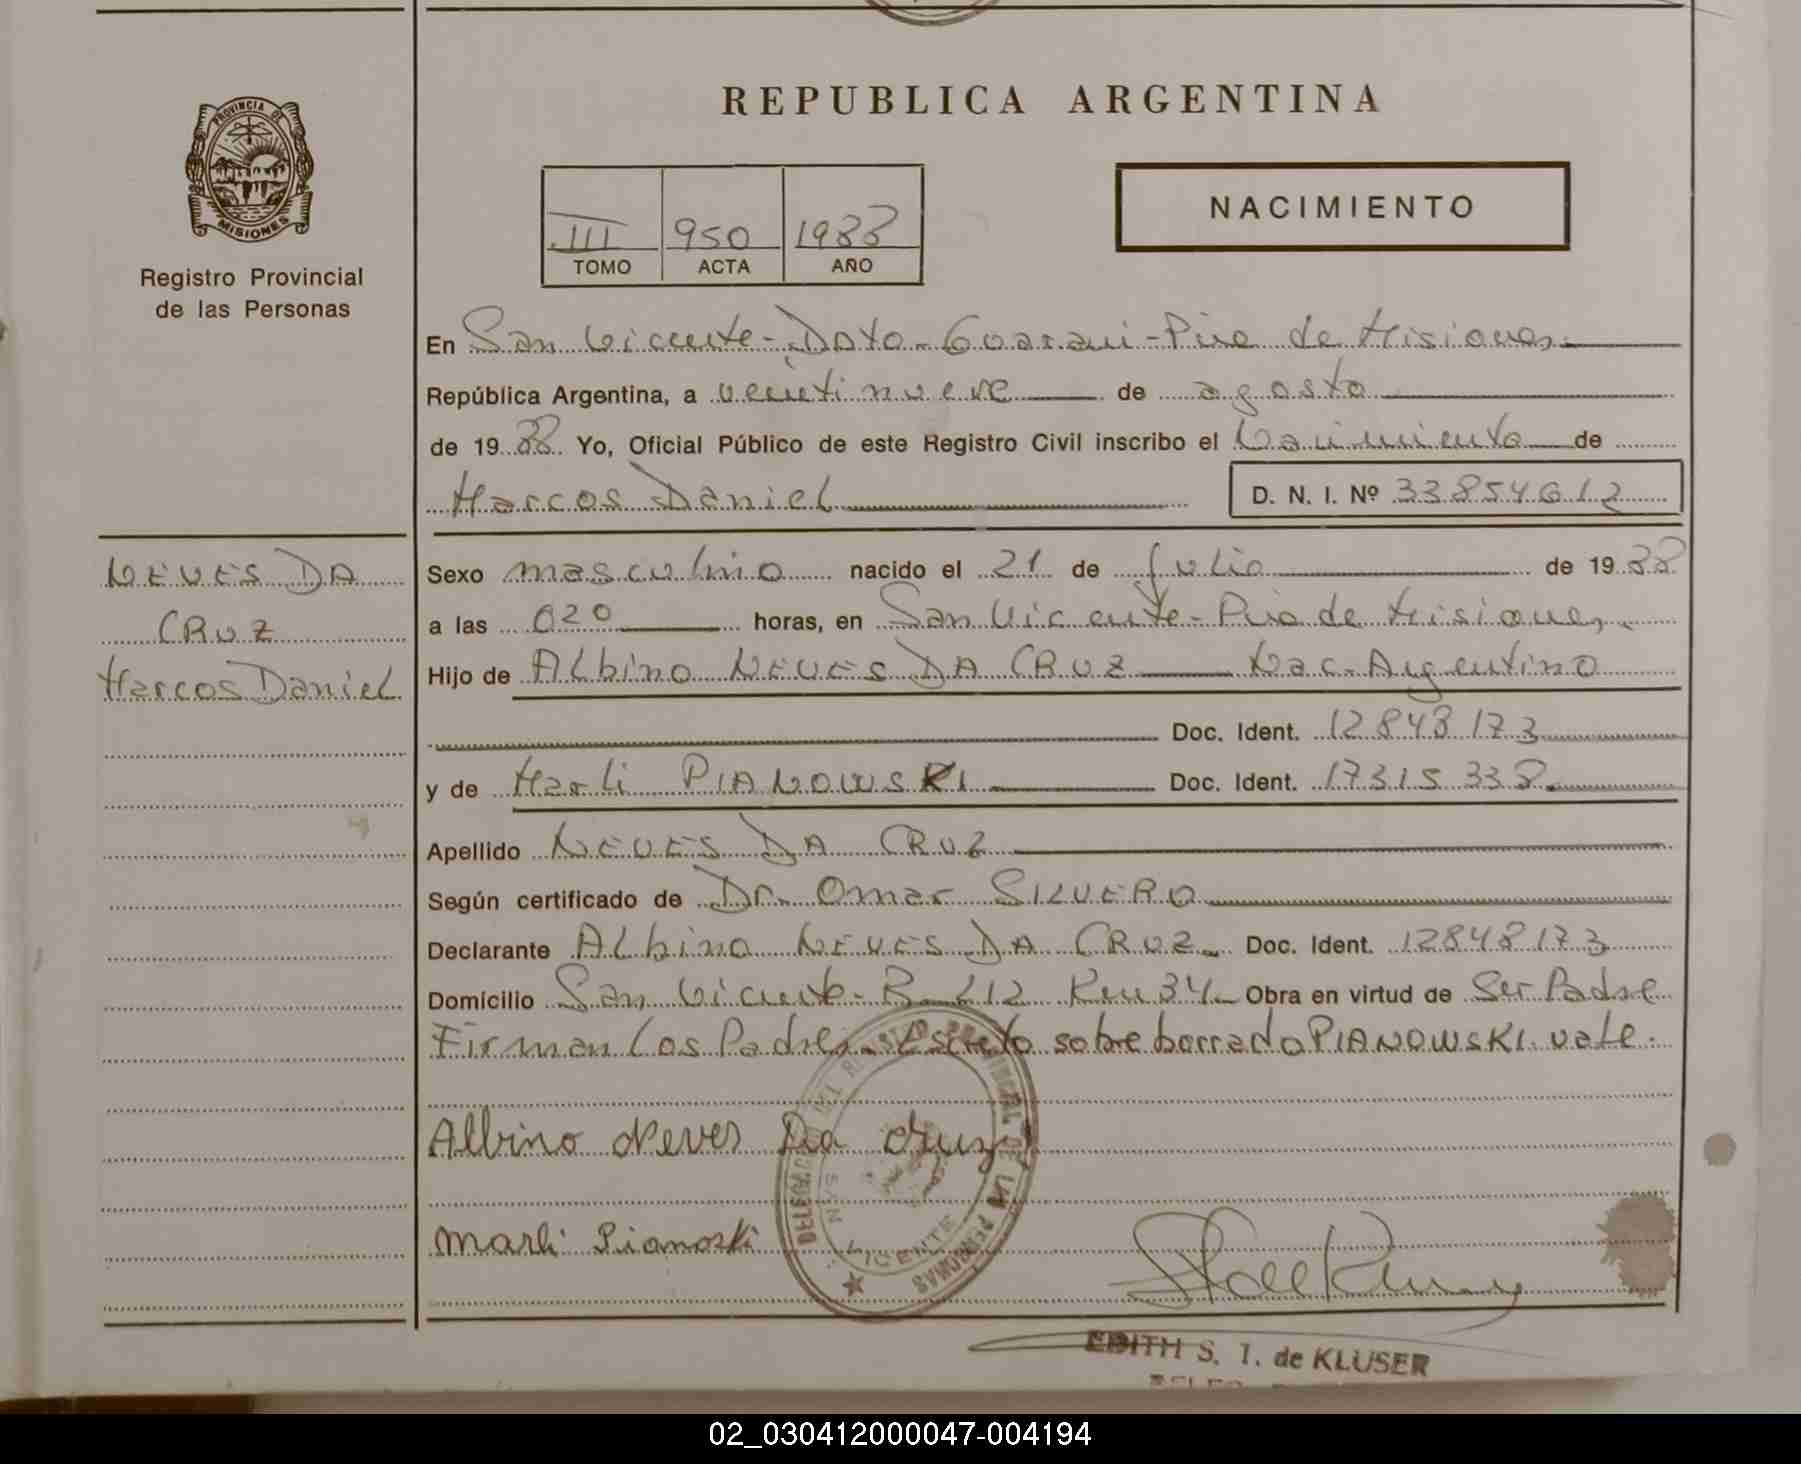 REPUBLICA ARGENTINA
PROVINCIA DE
MISIONES
Registro Provincial
de las Personas
III 950 1988
TOMO ACTA AÑO
NACIMIENTO
En San Vicente - Dpto - Guarani - Pcia de Misiones.
República Argentina, a veintinueve de agosto
de 1988 Yo, Oficial Público de este Registro Civil inscribo el Nacimiento de
Marcos Daniel D. N. I. Nº 33854612
NEVES DA
CRUZ
Marcos Daniel
Sexo masculino nacido el 21 de Julio de 1988
a las 020 horas, en San Vicente - Pcia de Misiones.
Hijo de Albino NEVES DA CRUZ Nac. Argentino
Doc. Ident. 12848173
y de Marli PIANOWSKI Doc. Ident. 17315338
Apellido NEVES DA CRUZ
Según certificado de Dr. Omar SILVERO
Declarante Albino NEVES DA CRUZ Doc. Ident. 12848173
Domicilio San Vicente - R 212 Km 34 - Obra en virtud de Ser Padre
Firman los Padres. Escrito sobre borrado PIANOWSKI vale.
Albino Neves Da Cruz
Marli Pianoski
REGISTRO PROVINCIAL DE LAS PERSONAS
SAN VICENTE
EDITH S. T. de KLUSER
02_030412000047-004194